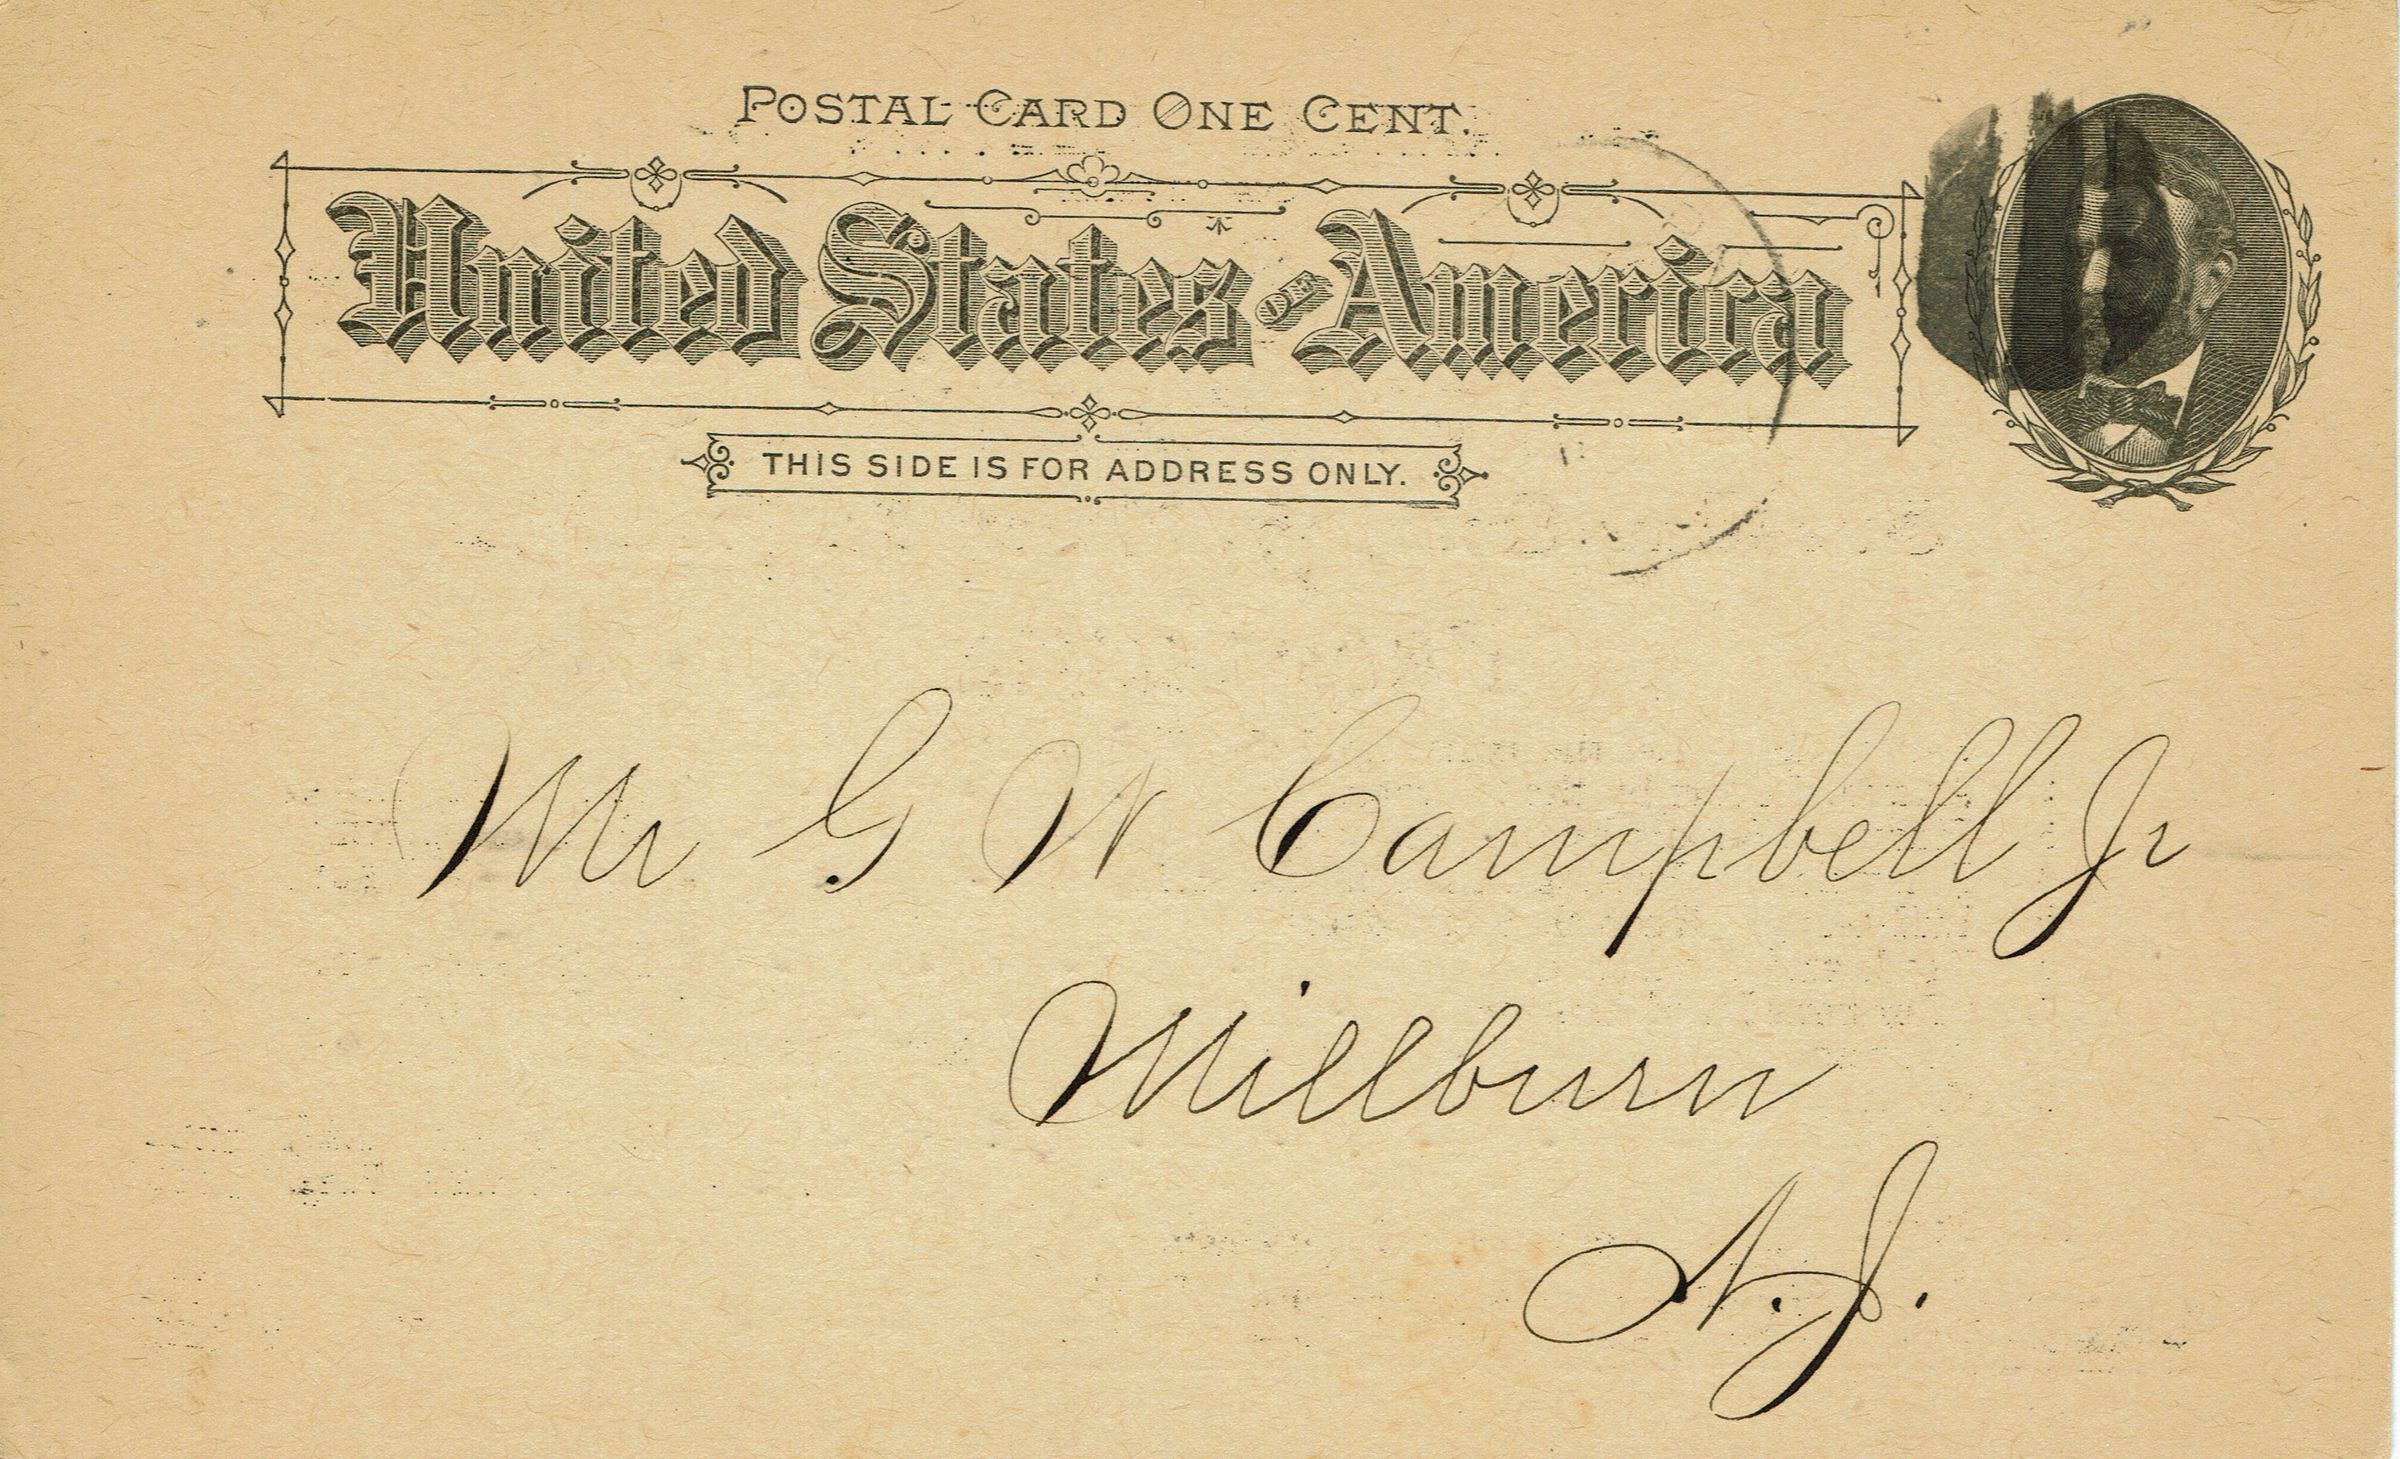 POSTAL CARD ONE CENT.
United States OF America
THIS SIDE IS FOR ADDRESS ONLY.
Mr G W Campbell Jr
Millburn
N. J.